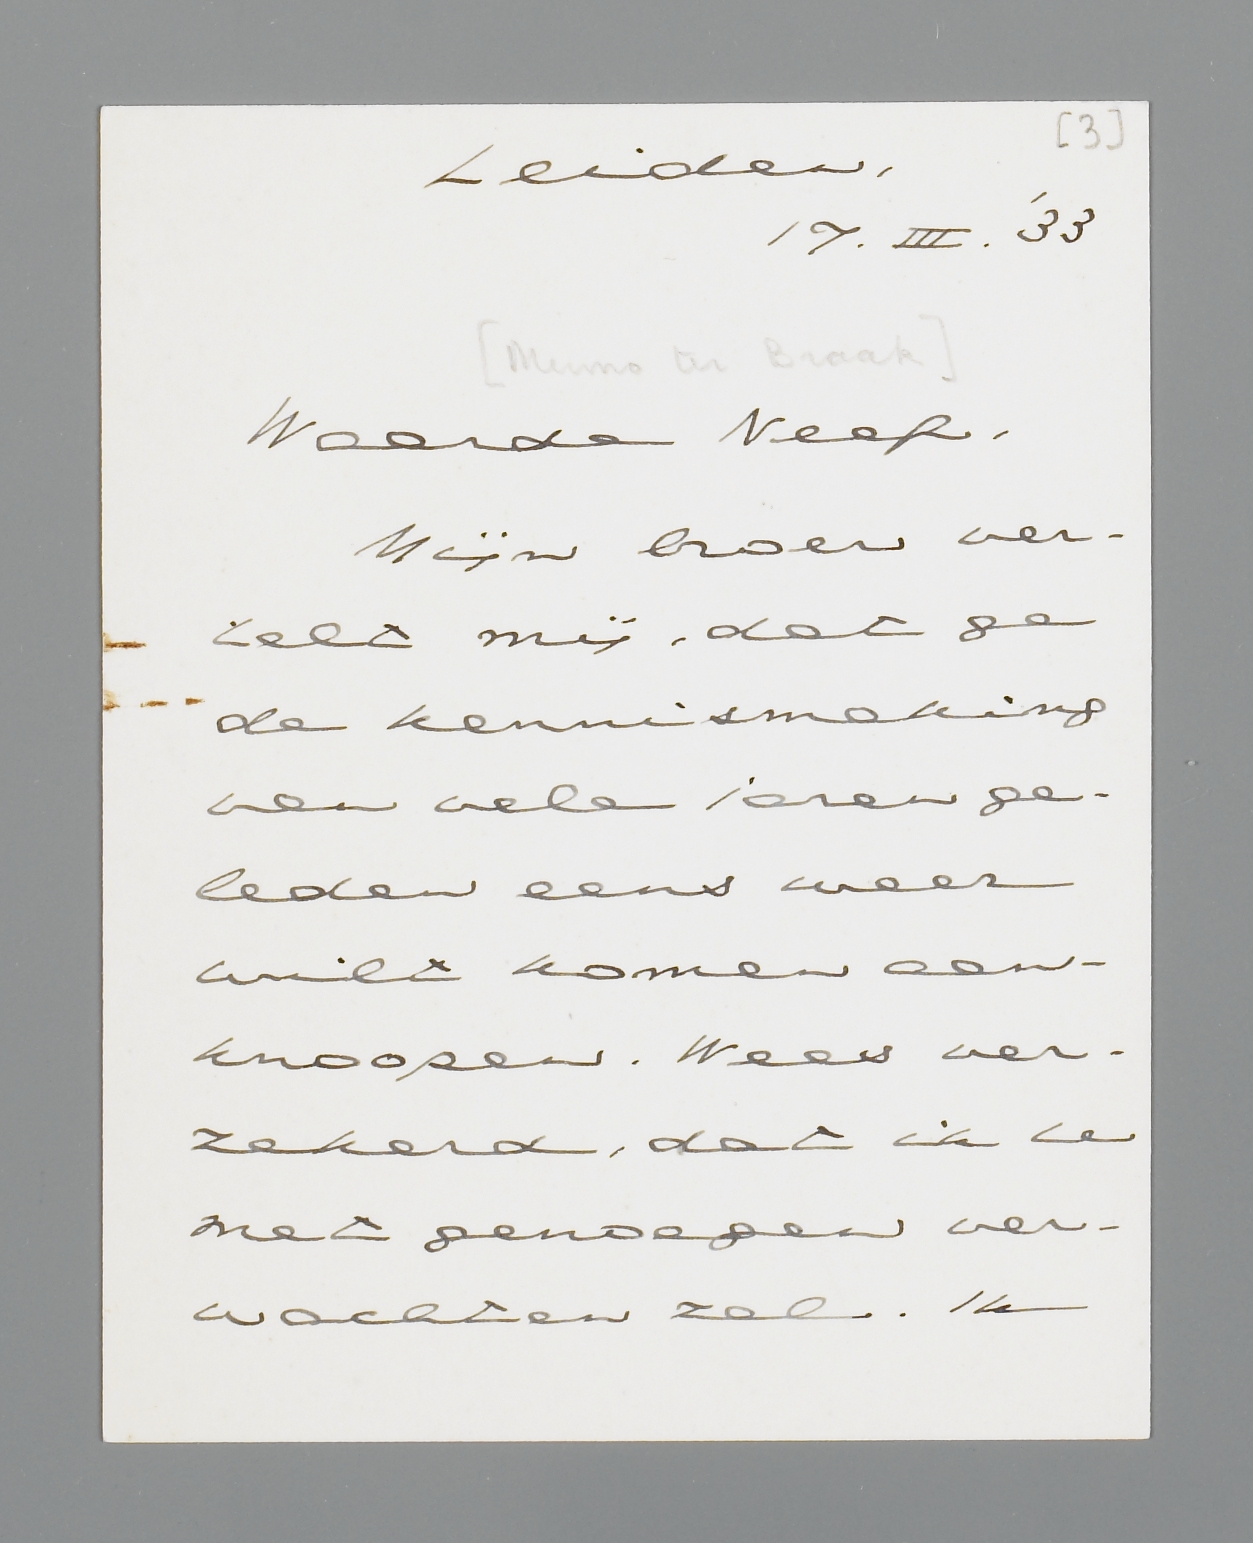 [3]
Leiden,
17. III. '33
[Menno ter Braak]
Waarde Neef,
Mijn broer ver-
telt mij, dat ge
de kennismaking
van vele jaren ge-
leden eens weer
wilt komen aan-
knoopen. Wees ver-
zekerd, dat ik je
met genoegen ver-
wachten zal. Ik